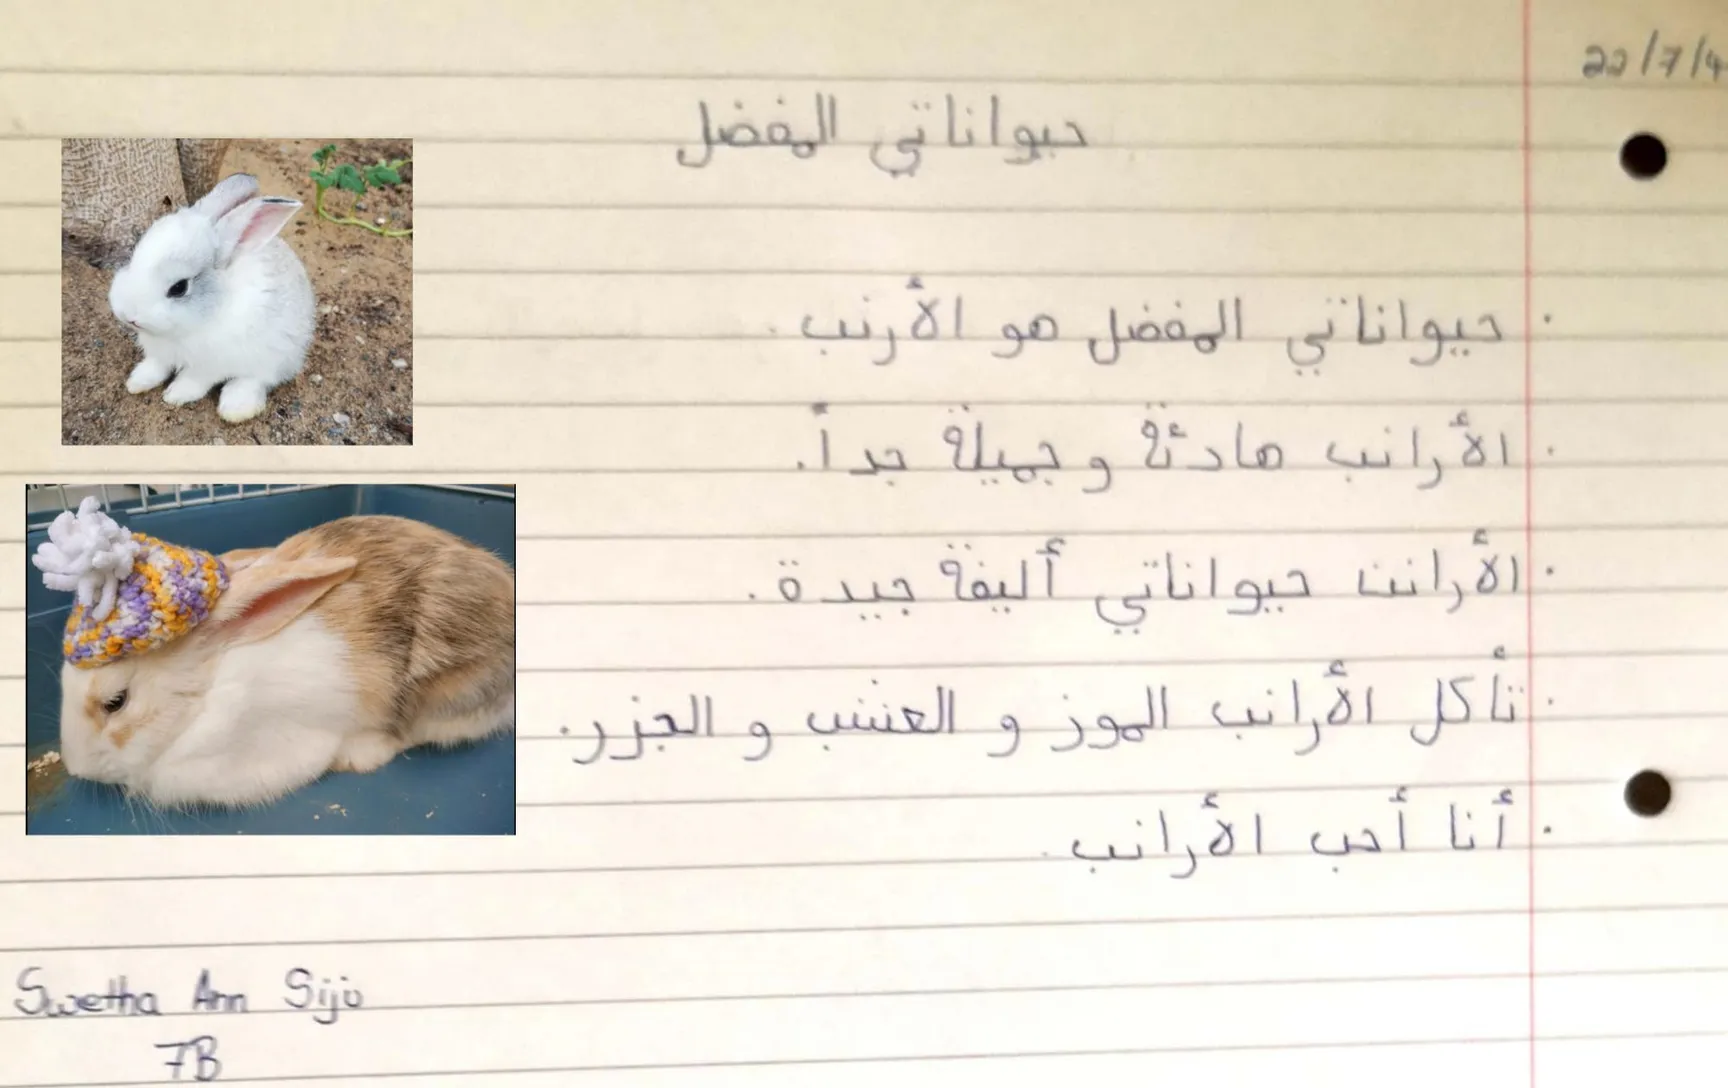 22/7/4
حيواناتي المفضل
· حيواناتي المفضل هو الأرنب.
· الأرانب هادئة و جميلة جداً.
· الأرانب حيواناتي أليفة جيدة.
· تأكل الأرانب الموز و العشب و الجزر.
· أنا أحب الأرانب.
Swetha Ann Siju
7B